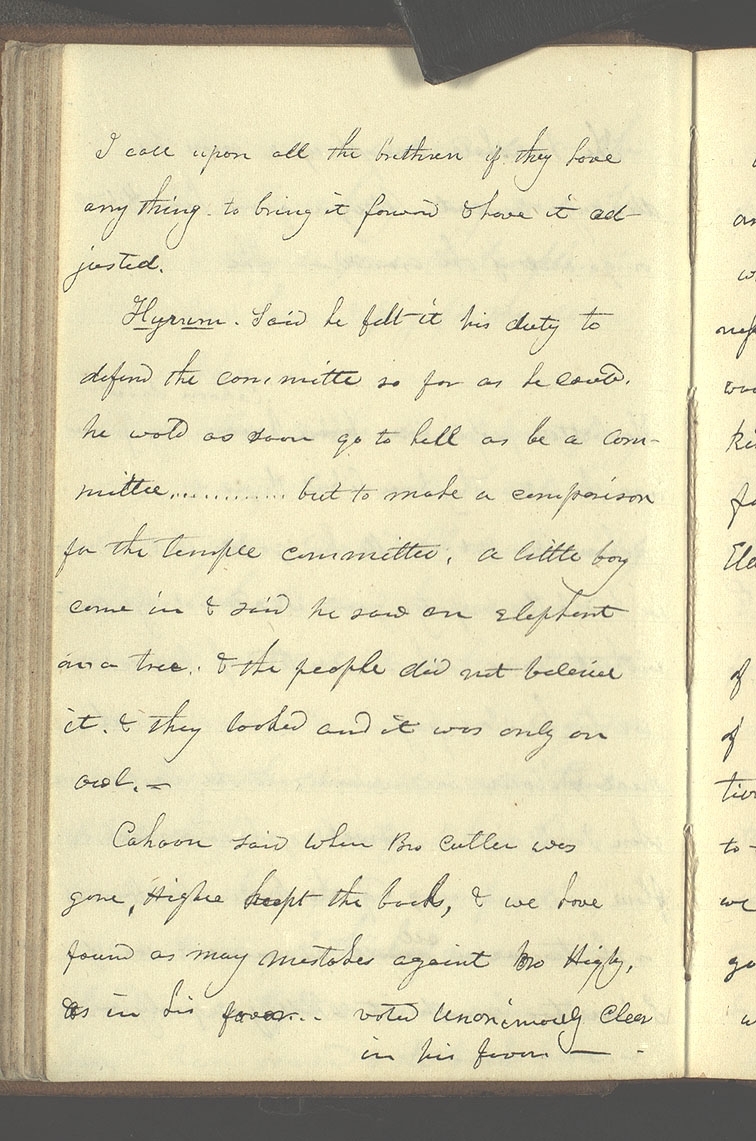 I call upon all the brethren if they have
any thing. to bring it forward & have it ad-
justed.
Hyrum. Said he felt it his duty to
defend the committe so far as he could.
he wold as soon go to hell as be a com-
mittee,............ but to make a comparison
for the temple committee, a little boy
come in & said he saw an elephant
on a tree. & the people did not believe
it. & they looked and it was only an
owl. —
Cahoon said when Bro Cutler was
gone, Higbee keept the books, & we have
found as may mistakes againt Bro Higby,
as in his favor... voted Unanimously Clear
in his favor —
an
w
wa
fo
Ela
of
of
to-
we
go
w